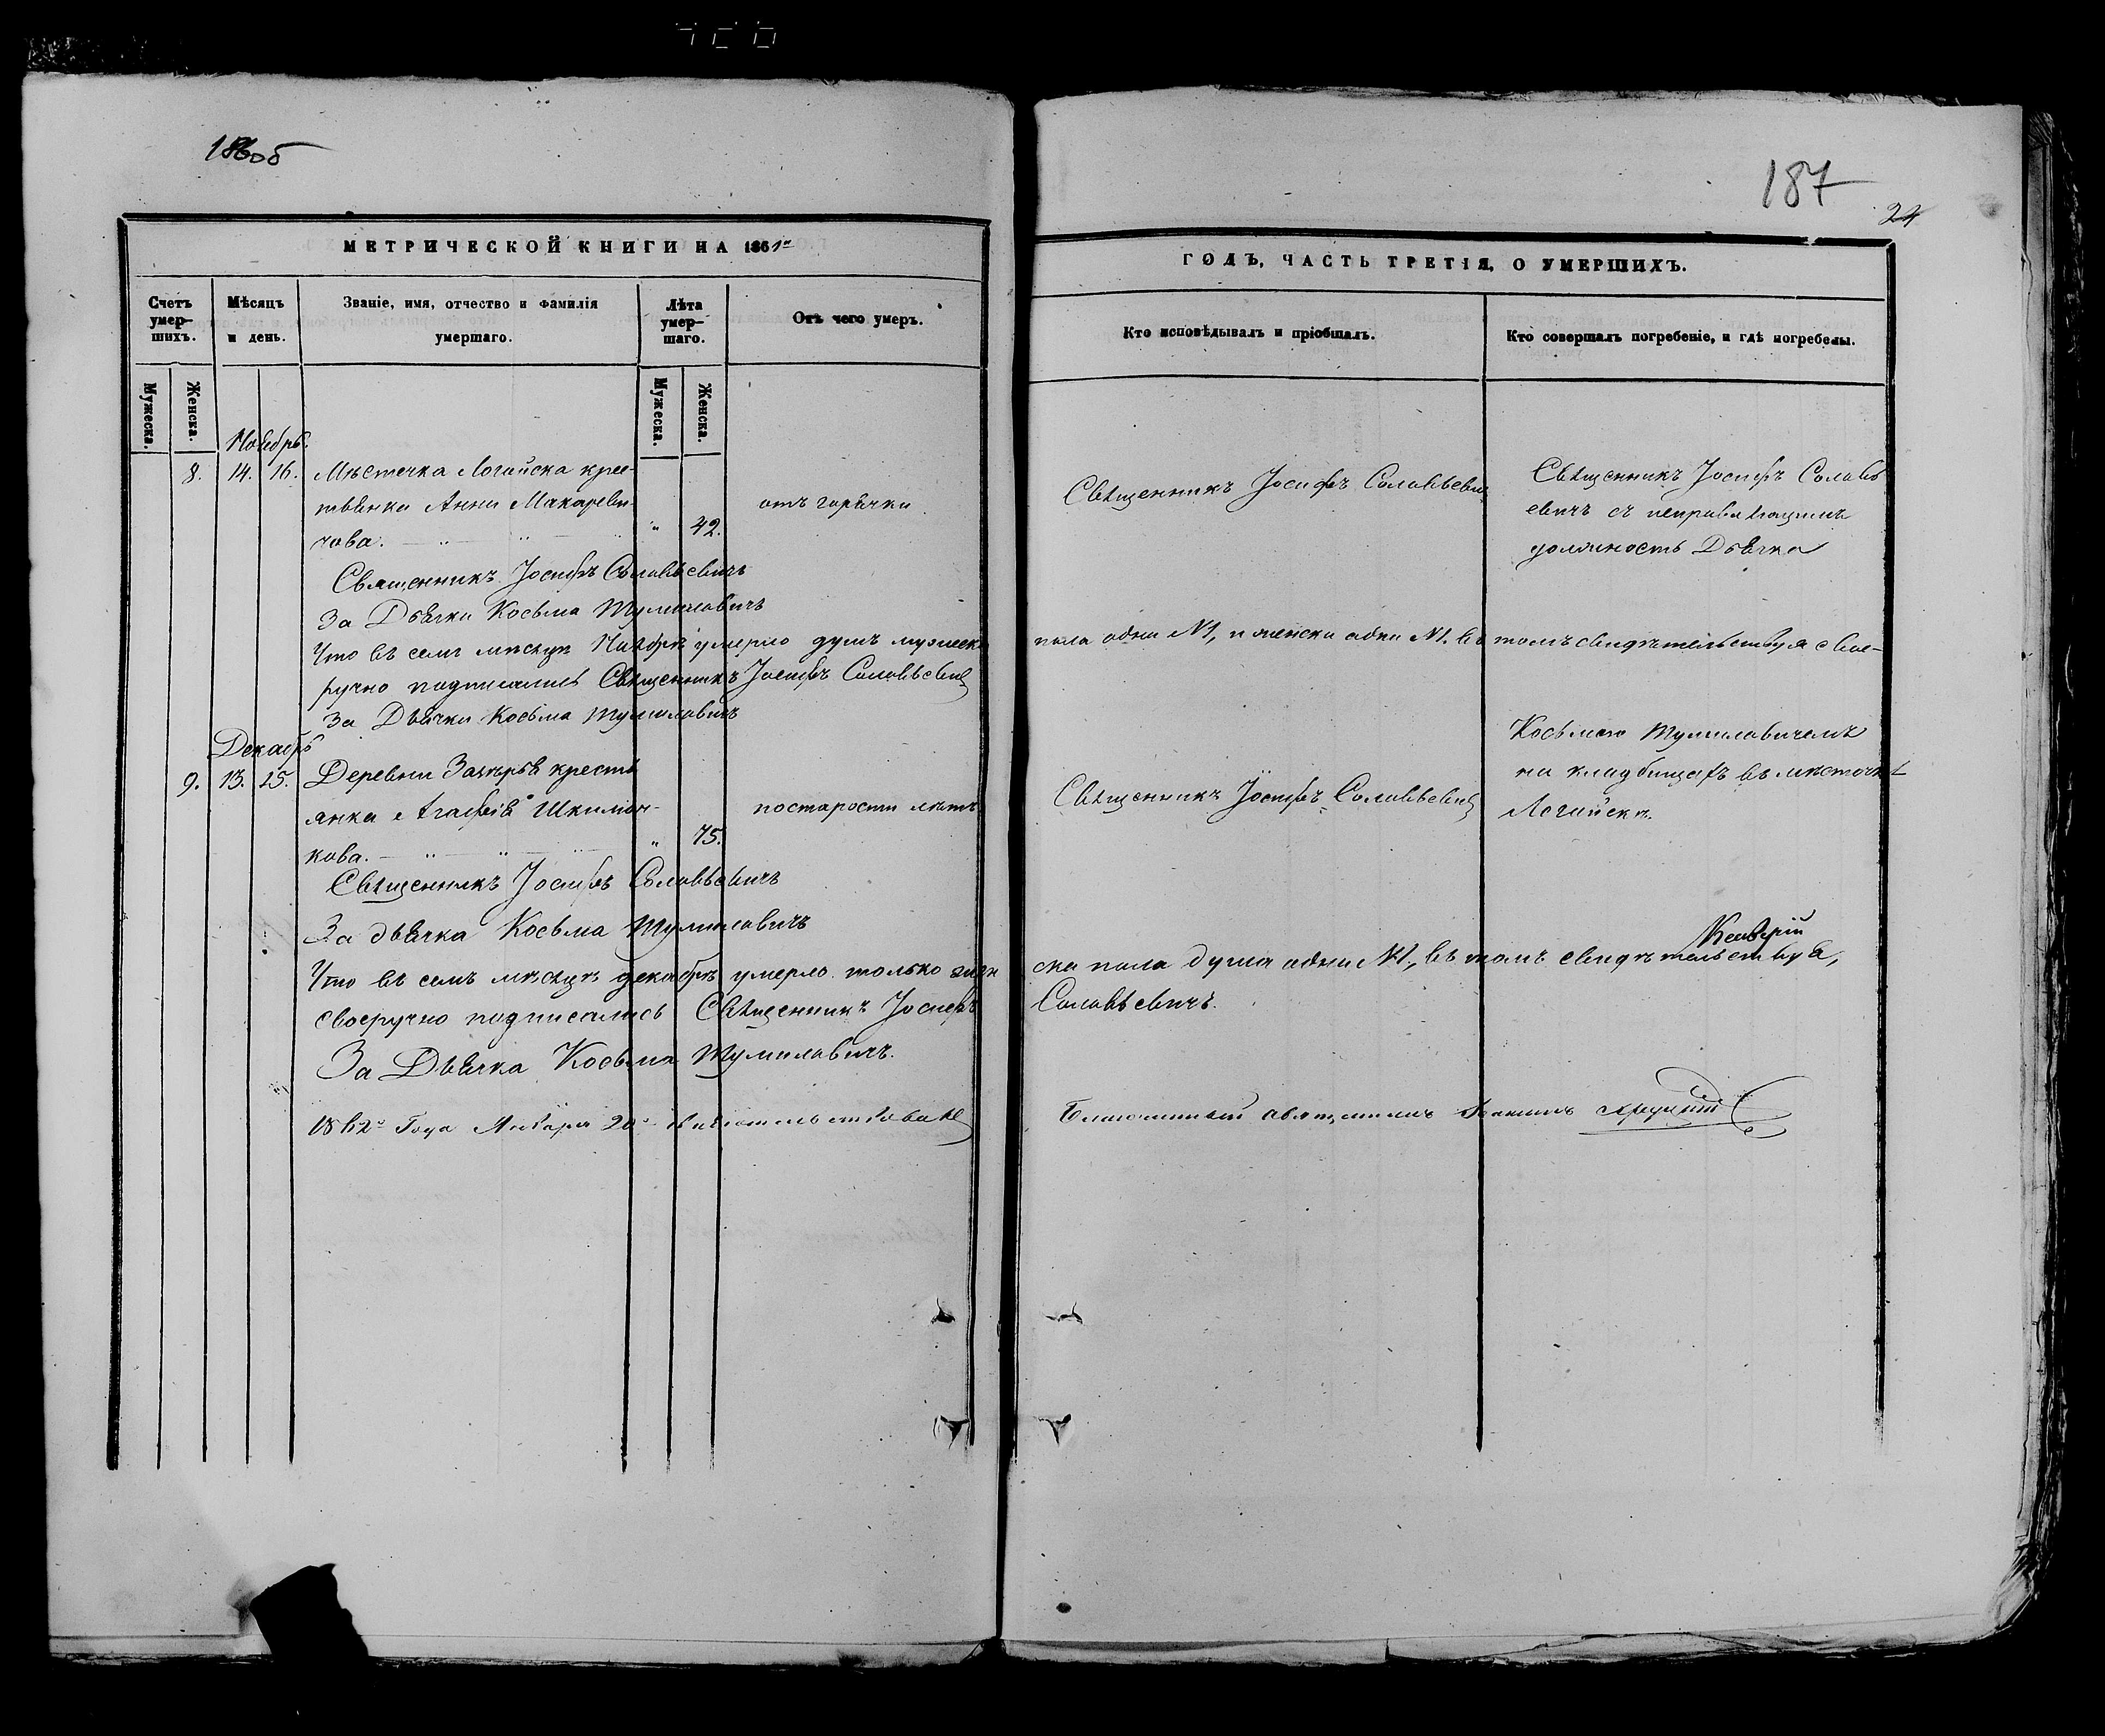 186об
187
24
МЕТРИЧЕСКОЙ КНИГИ НА 1861й
ГОДЪ, ЧАСТЬ ТРЕТІЯ, О УМЕРШИХЪ.
Счетъ умер-шихъ.
Мѣсяцъ и день.
Званіе, имя, отчество и фамилія умершаго.
Лѣта умер-шаго.
Отъ чего умеръ.
Кто исповѣдывалъ и пріобщалъ.
Кто совершалъ погребеніе, и гдѣ погребены.
Мужеска.
Женска.
Мужеска.
Женска.
Ноябрь.
8. 14. 16. Мѣстечка Логойска крес-
тьянка Анна Макареви-
чова. " 42.
отъ горячки
Священникъ Іосифъ Соловьевичъ
Священникъ Іосифъ Соловь
евичъ съ исправляющимъ
должность Дьячка
Священникъ Іосифъ Соловьевичъ
За Дьячка Косьма Тумиловичъ
Что въ семъ мѣсяцѣ Ноябрѣ умерло душъ мужеска
пола одна №1, и женска одна №1. въ томъ свидѣтельствуя свое-
ручно подписались Священникъ Іосифъ Соловьевичъ
За Дьячка Косьма Тумиловичъ
Декабрь
9. 13. 15. Деревни крестья
янка Агафія
кова. " 75.
по старости лѣтъ
Священникъ Іосифъ Соловьевичъ
Косьмою Тумиловичемъ
на кладбищѣ въ мѣстечкѣ
Логойскѣ.
Священникъ Іосифъ Соловьевичъ
За дьячка Косьма Тумиловичъ
Что въ семъ мѣсяцѣ декабрѣ умерло только жен
ска пола душа одна №1, въ томъ свидѣтельствуя,
своеручно подписались Священникъ Іосифъ
Соловьевичъ.
За Дьячка Косьма Тумиловичъ.
1862го Года Января 20го
Благочинный священникъ